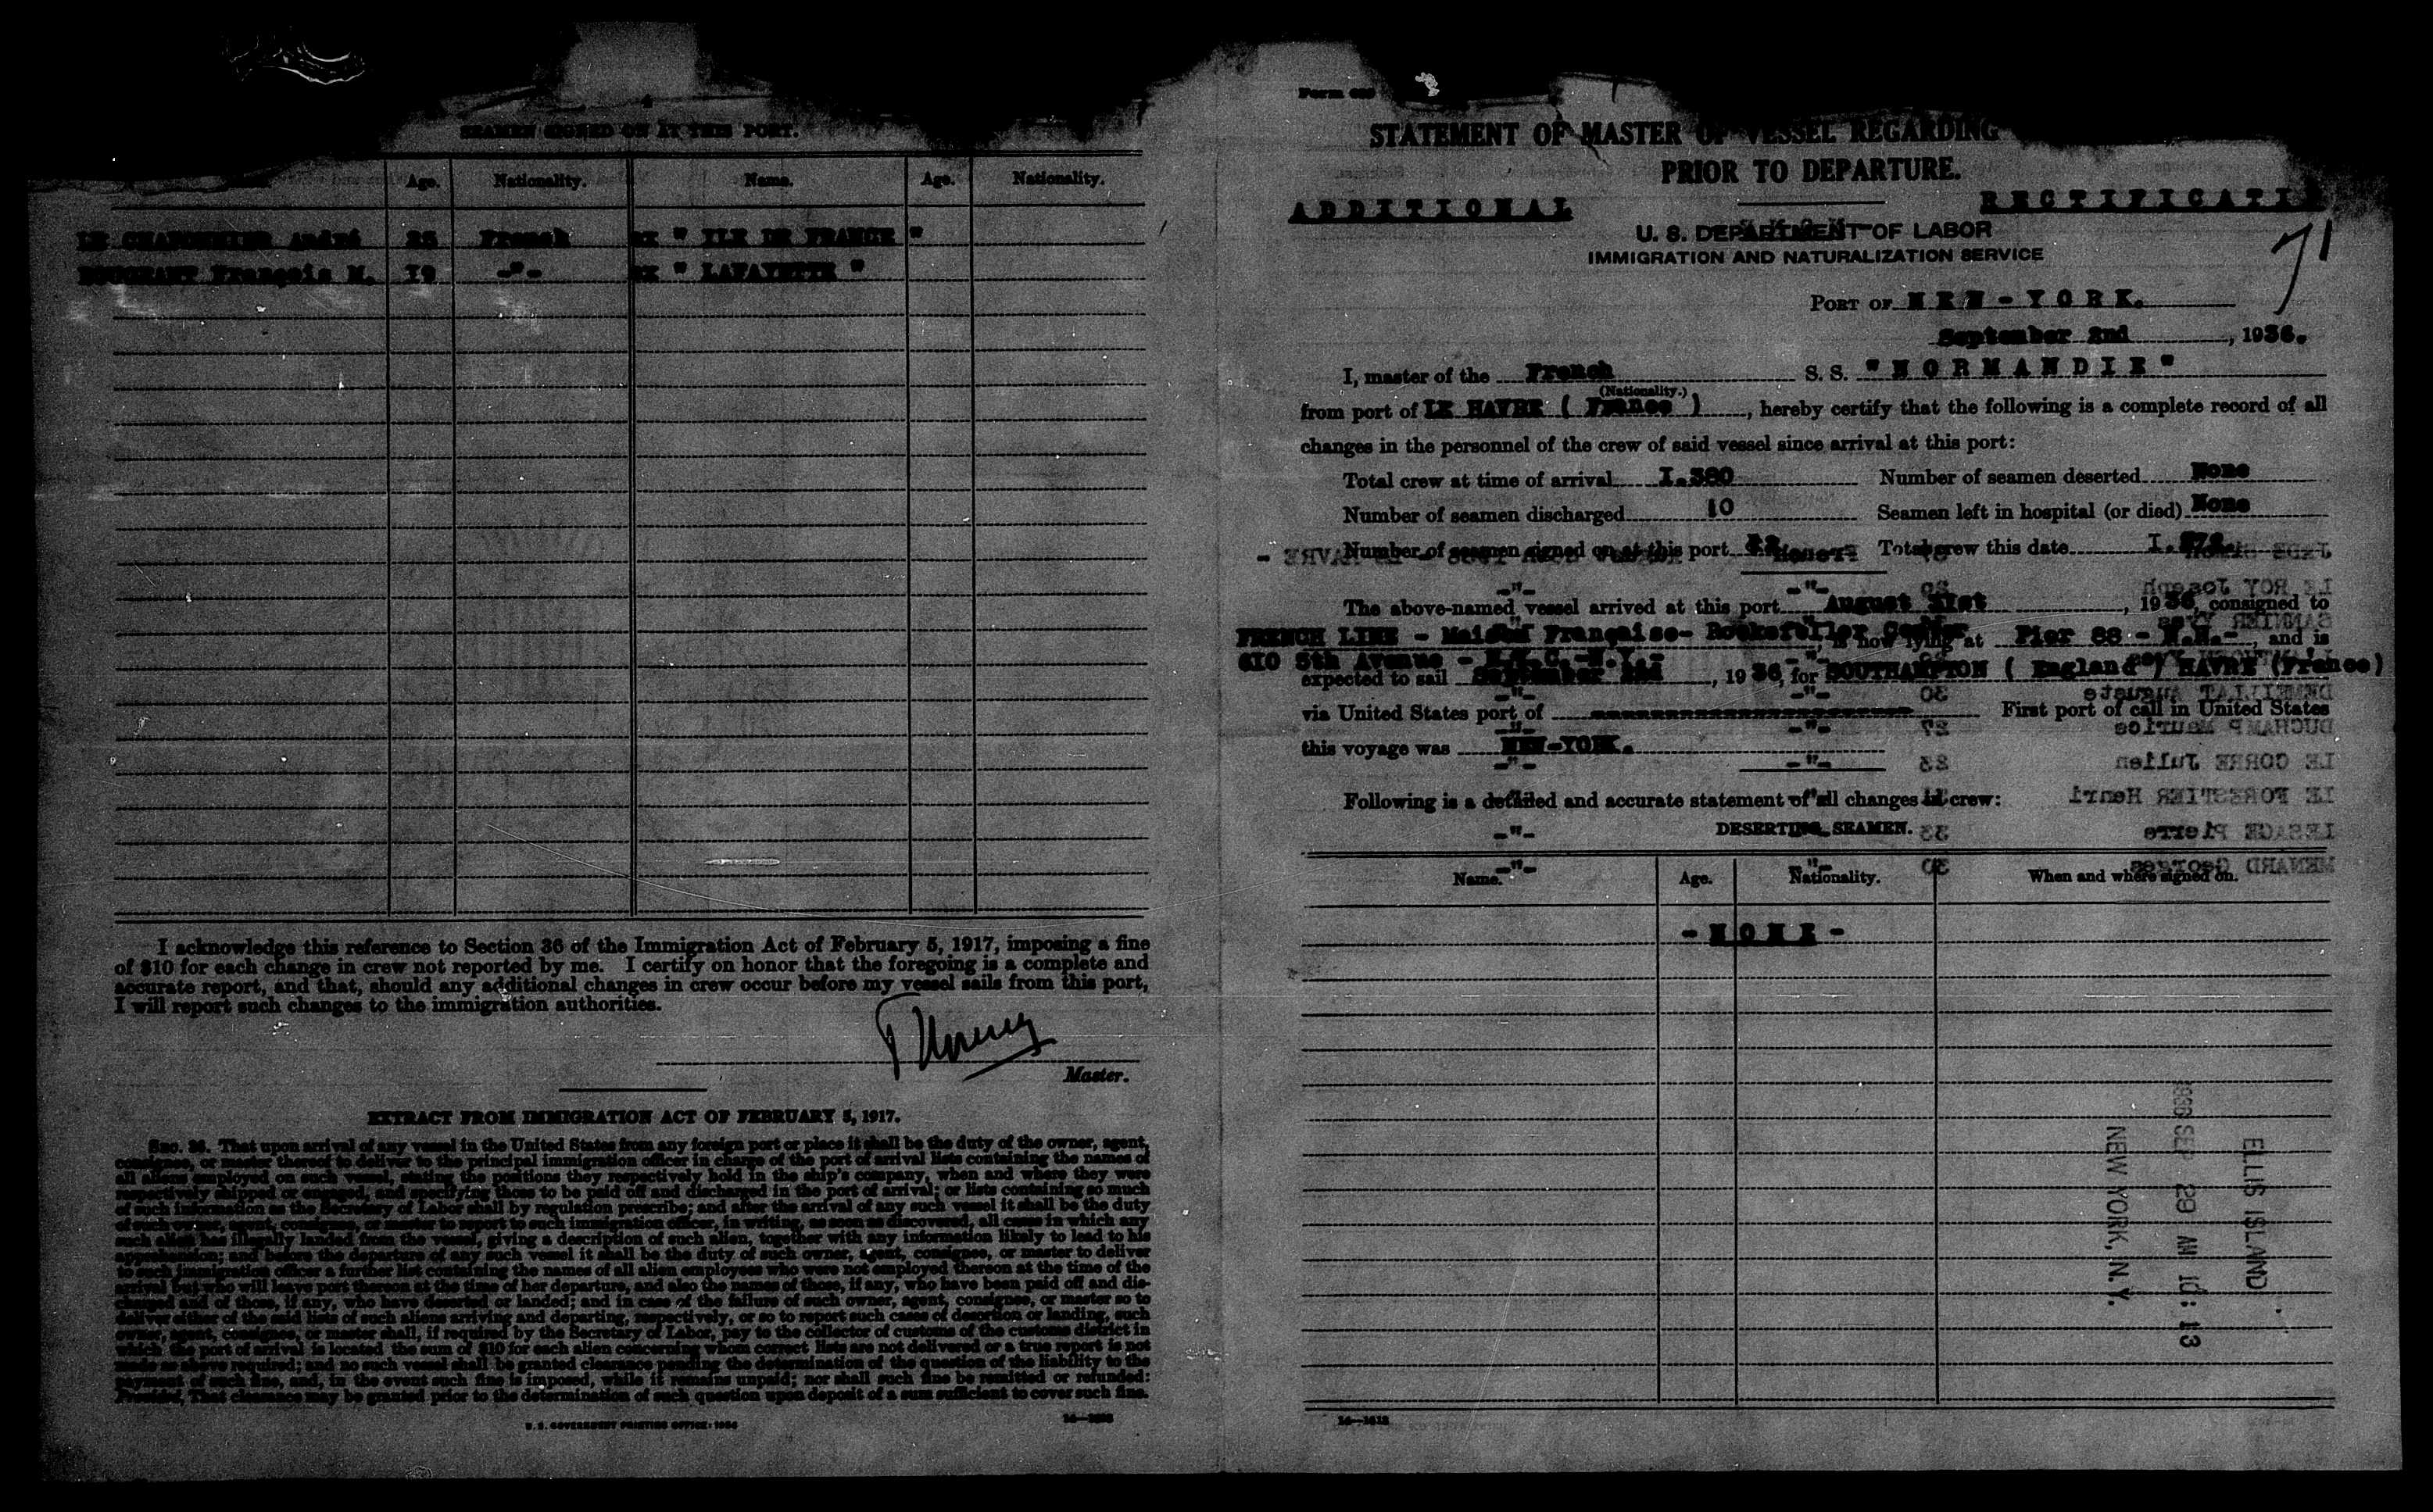 SEAMEN SIGNED ON AT THIS PORT.
Age. Nationality. Name. Age. Nationality.
LE CHAPONNIER André 25 French ex " ILE DE FRANCE "
François M. 19 -"- ex " LAFAYETTE "
I acknowledge this reference to Section 36 of the Immigration Act of February 5, 1917, imposing a fine
of $10 for each change in crew not reported by me. I certify on honor that the foregoing is a complete and
accurate report, and that, should any additional changes in crew occur before my vessel sails from this port,
I will report such changes to the immigration authorities.
Master.
EXTRACT FROM IMMIGRATION ACT OF FEBRUARY 5, 1917.
SEC. 36. That upon arrival of any vessel in the United States from any foreign port or place it shall be the duty of the owner, agent,
consignee, or master thereof to deliver to the principal immigration officer in charge of the port of arrival lists containing the names of
all aliens employed on such vessel, stating the positions they respectively hold in the ship's company, when and where they were
respectively shipped or engaged, and specifying those to be paid off and discharged in the port of arrival; or lists containing so much
of such information as the Secretary of Labor shall by regulation prescribe; and after the arrival of any such vessel it shall be the duty
of such vessel, agent, consignee, or master to report to such immigration officer, in writing, as soon as discovered, all cases in which any
such alien has illegally landed from the vessel, giving a description of such alien, together with any information likely to lead to his
apprehension; and before the departure of any such vessel it shall be the duty of such owner, agent, consignee, or master to deliver
to such immigration officer a further list containing the names of all alien employees who were not employed thereon at the time of the
arrival but who will leave port thereon at the time of her departure, and also the names of those, if any, who have been paid off and dis-
charged and of those, if any, who have deserted or landed; and in case of the failure of such owner, agent, consignee, or master so to
deliver either of the said lists of such aliens arriving and departing, respectively, or so to report such cases of desertion or landing, such
owner, agent, consignee, or master shall, if required by the Secretary of Labor, pay to the collector of customs of the customs district in
which the port of arrival is located the sum of $10 for each alien concerning whom correct lists are not delivered or a true report is not
made as above required; and no such vessel shall be granted clearance pending the determination of the question of the liability to the
payment of such fine, and, in the event such fine is imposed, while it remains unpaid; nor shall such fine be remitted or refunded:
Provided, That clearance may be granted prior to the determination of such question upon deposit of a sum sufficient to cover such fine.
U. S. GOVERNMENT PRINTING OFFICE: 1934
Form
STATEMENT OF MASTER OF VESSEL REGARDING
PRIOR TO DEPARTURE.
ADDITIONAL RECTIFICATI
U. S. DEPARTMENT OF LABOR
IMMIGRATION AND NATURALIZATION SERVICE
71
PORT OF NEW-YORK.
September 2nd, 1936.
I, master of the French S. S. "NORMANDIE"
(Nationality.)
from port of LE HAVRE ( France ), hereby certify that the following is a complete record of all
changes in the personnel of the crew of said vessel since arrival at this port:
Total crew at time of arrival I.380 Number of seamen deserted None
Number of seamen discharged 10 Seamen left in hospital (or died) None
Number of seamen signed on at this port Total crew this date
The above-named vessel arrived at this port August 31st, 1936, consigned to
FRENCH LINE - Maison Française- Rockefeller Center, is now lying at Pier 88 - N.R.-, and is
610 5th Avenue - N.Y.C.-N.Y.-
expected to sail September 2nd, 1936, for SOUTHAMPTON ( England ) HAVRE (France)
via United States port of ---------- First port of call in United States
this voyage was NEW-YORK.
Following is a detailed and accurate statement of all changes in crew:
DESERTING SEAMEN.
Name. Age. Nationality. When and where signed on.
- NONE -
ELLIS ISLAND
1936 SEP 29 AM 10:13
NEW YORK, N.Y.